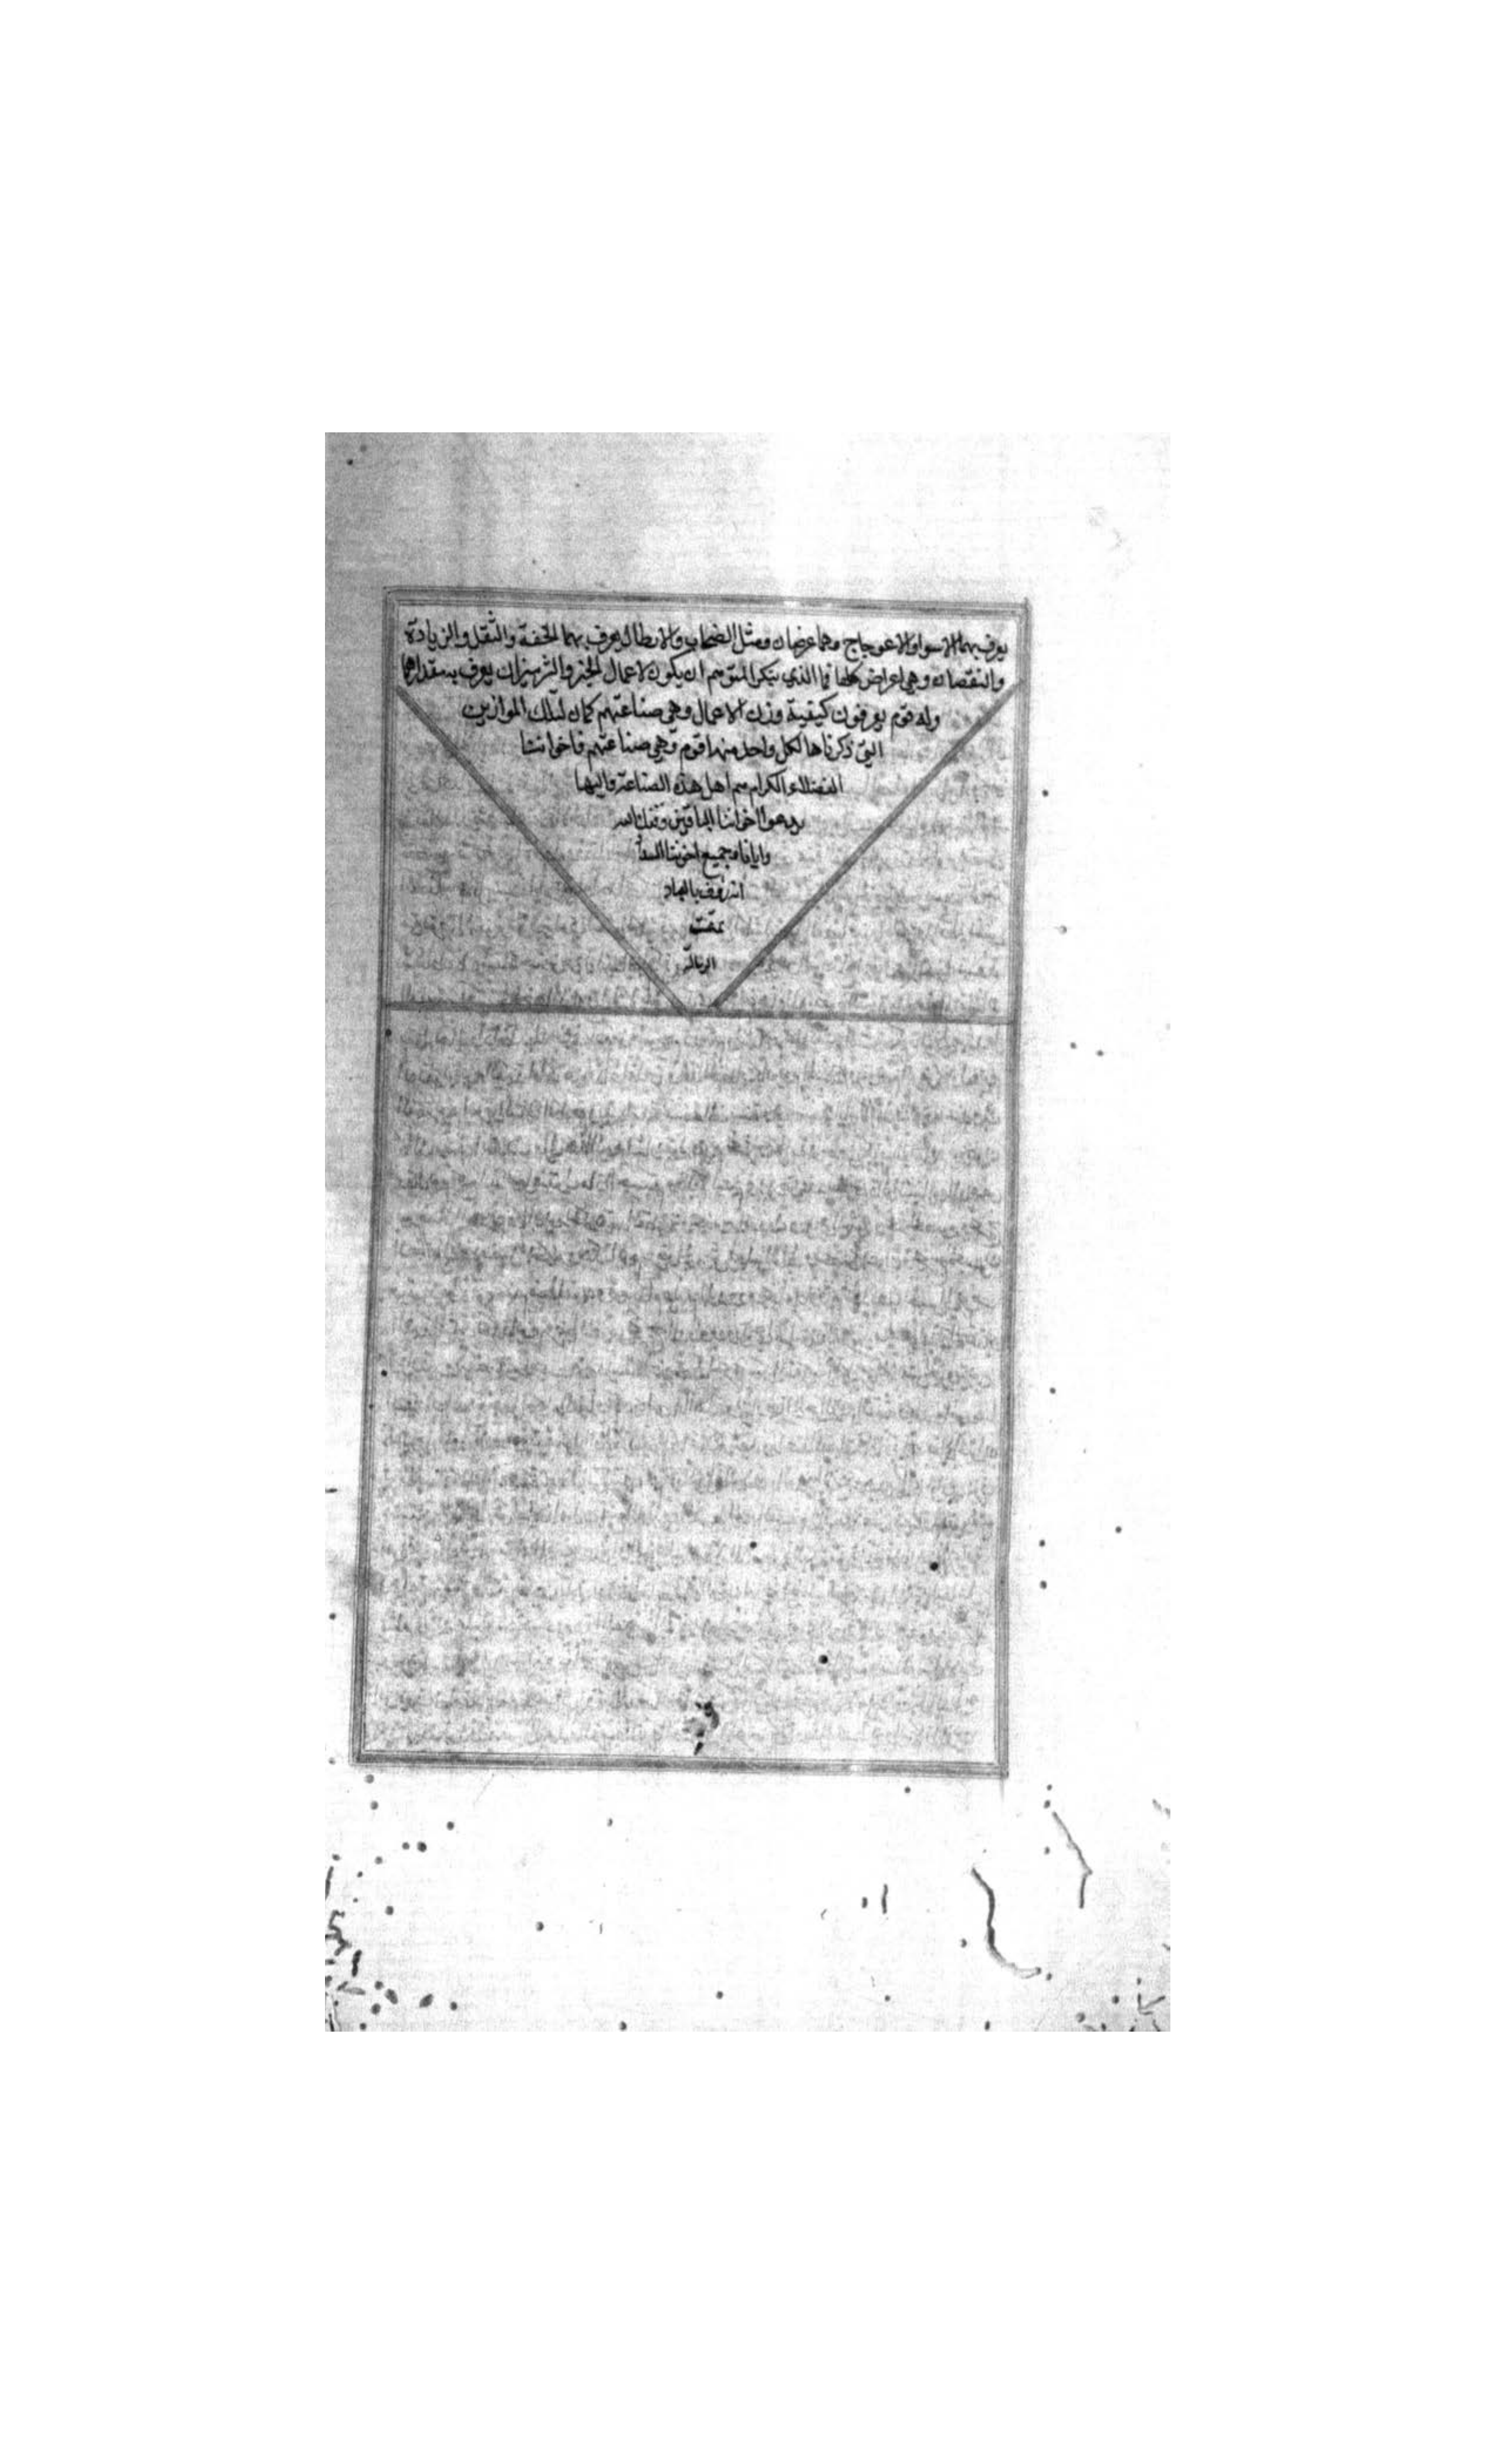 يعرف بهما الاسوا والاعوجاج وهما عرضان ومثل الصنجات والارطال يعرف بهما الخفة والثقل والزيادة
والنقصان وهي اعراض كلها فما الذي ينكر المتوهم ان يكون لاعمال الخير والشر ميزان يعرف به مقدارهما
وله قوم يعرفون كيفية وزن الاعمال وهي صناعتهم كمان لتلك الموازين
التي ذكرناها لكل واحد منها قوم وهي صناعتهم فاخواننا
الفضلاء الكرام هم اهل هذه الصناعة واليها
يدعوا اخواننا الباقين وفقك الله
وايانا وجميع اخوتنا
انه رؤف بالعباد
تمت
الرسالة